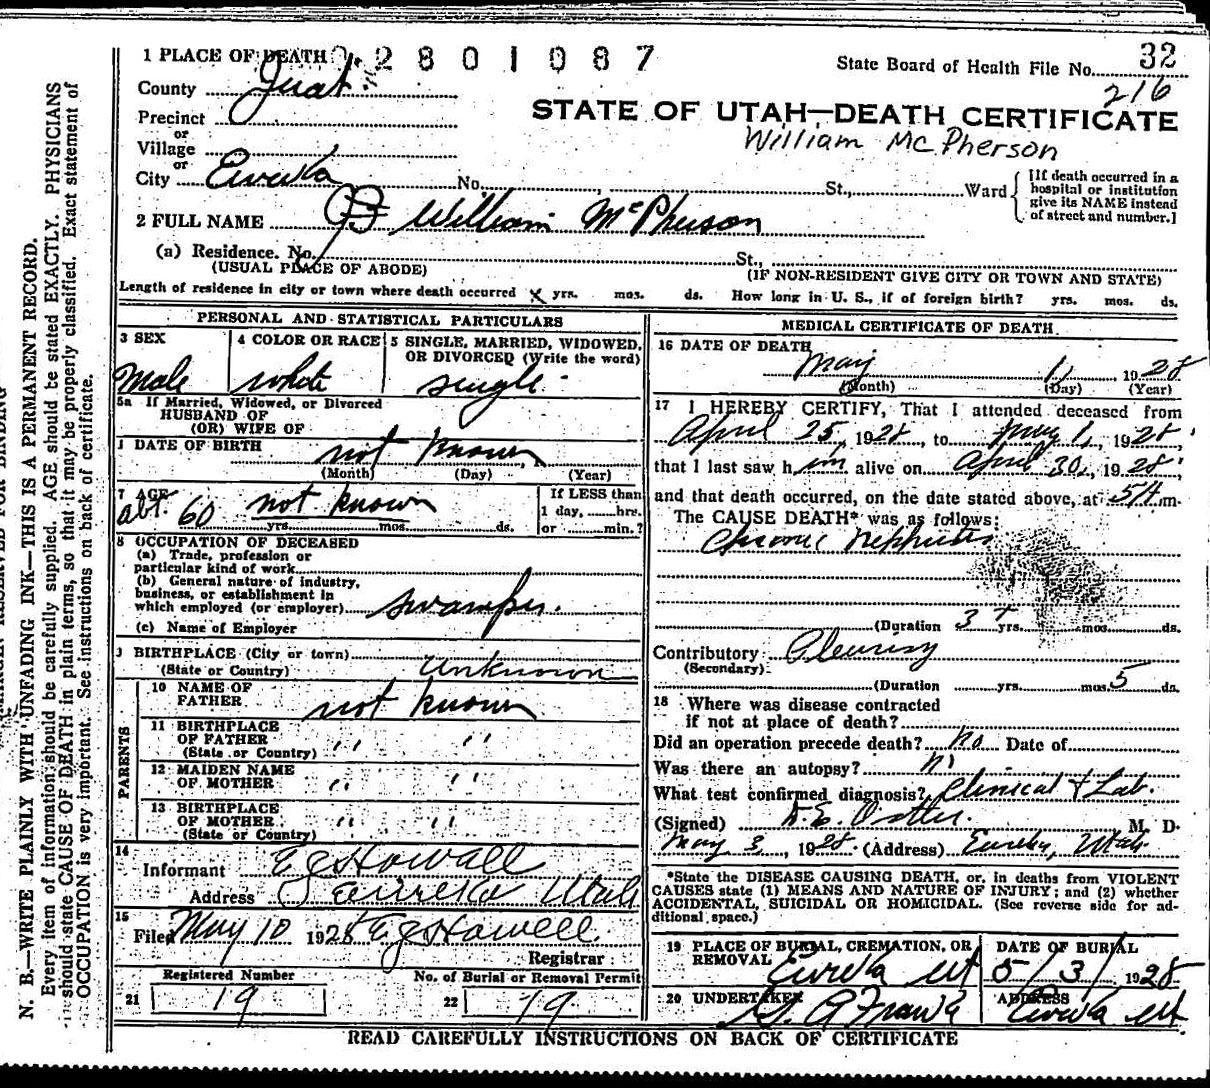 1 PLACE OF DEATH 02801087
State Board of Health File No. 32
216
County Juab
STATE OF UTAH—DEATH CERTIFICATE
Precinct
or
William McPherson
Village
or
City Eureka No. , St., Ward
[If death occurred in a
hospital or institution
give its NAME instead
of street and number.]
2 FULL NAME William McPherson
(a) Residence. No. St.,
(USUAL PLACE OF ABODE) (IF NON-RESIDENT GIVE CITY OR TOWN AND STATE)
Length of residence in city or town where death occurred X yrs. mos. ds. How long in U. S., if of foreign birth? yrs. mos. ds.
PERSONAL AND STATISTICAL PARTICULARS
3 SEX 4 COLOR OR RACE 5 SINGLE, MARRIED, WIDOWED,
OR DIVORCED (Write the word)
Male white single
5a If Married, Widowed, or Divorced
HUSBAND OF
(OR) WIFE OF
DATE OF BIRTH not known
(Month) (Day) (Year)
7 AGE If LESS than
abt. 60 not known 1 day, hrs.
yrs. mos. ds. or min.?
8 OCCUPATION OF DECEASED
(a) Trade, profession or
particular kind of work
(b) General nature of industry,
business, or establishment in
which employed (or employer) swamper.
(c) Name of Employer
BIRTHPLACE (City or town)
(State or Country) unknown
PARENTS
10 NAME OF
FATHER not known
11 BIRTHPLACE
OF FATHER " "
(State or Country)
12 MAIDEN NAME
OF MOTHER " "
13 BIRTHPLACE
OF MOTHER " "
(State or Country)
14
Informant E J Howell
Address Eureka Utah
15
Filed May 10 1928 E J Howell
Registrar
Registered Number No. of Burial or Removal Permit
21 19 22 19
MEDICAL CERTIFICATE OF DEATH
16 DATE OF DEATH
May 1, 1928
(Month) (Day) (Year)
17 I HEREBY CERTIFY, That I attended deceased from
April 25, 1928, to May 1, 1928,
that I last saw him alive on April 30, 1928,
and that death occurred, on the date stated above, at 5 A m.
The CAUSE DEATH* was as follows:
Chronic Nephritis
(Duration 3 + yrs. mos. ds.
Contributory Pleurisy
(Secondary)
(Duration yrs. mos. 5 ds.
18 Where was disease contracted
if not at place of death?
Did an operation precede death? no Date of
Was there an autopsy? no
What test confirmed diagnosis? Clinical + Lab.
(Signed) M. D.
May 3, 1928 (Address) Eureka, Utah
*State the DISEASE CAUSING DEATH, or, in deaths from VIOLENT
CAUSES state (1) MEANS AND NATURE OF INJURY; and (2) whether
ACCIDENTAL, SUICIDAL OR HOMICIDAL. (See reverse side for ad-
ditional space.)
19 PLACE OF BURIAL, CREMATION, OR DATE OF BURIAL
REMOVAL Eureka Ut 5/3/1928
20 UNDERTAKER ADDRESS
Eureka Ut
READ CAREFULLY INSTRUCTIONS ON BACK OF CERTIFICATE
N. B.—WRITE PLAINLY WITH UNFADING INK—THIS IS A PERMANENT RECORD.
Every item of information should be carefully supplied. AGE should be stated EXACTLY. PHYSICIANS
should state CAUSE OF DEATH in plain terms, so that it may be properly classified. Exact statement of
OCCUPATION is very important. See instructions on back of certificate.